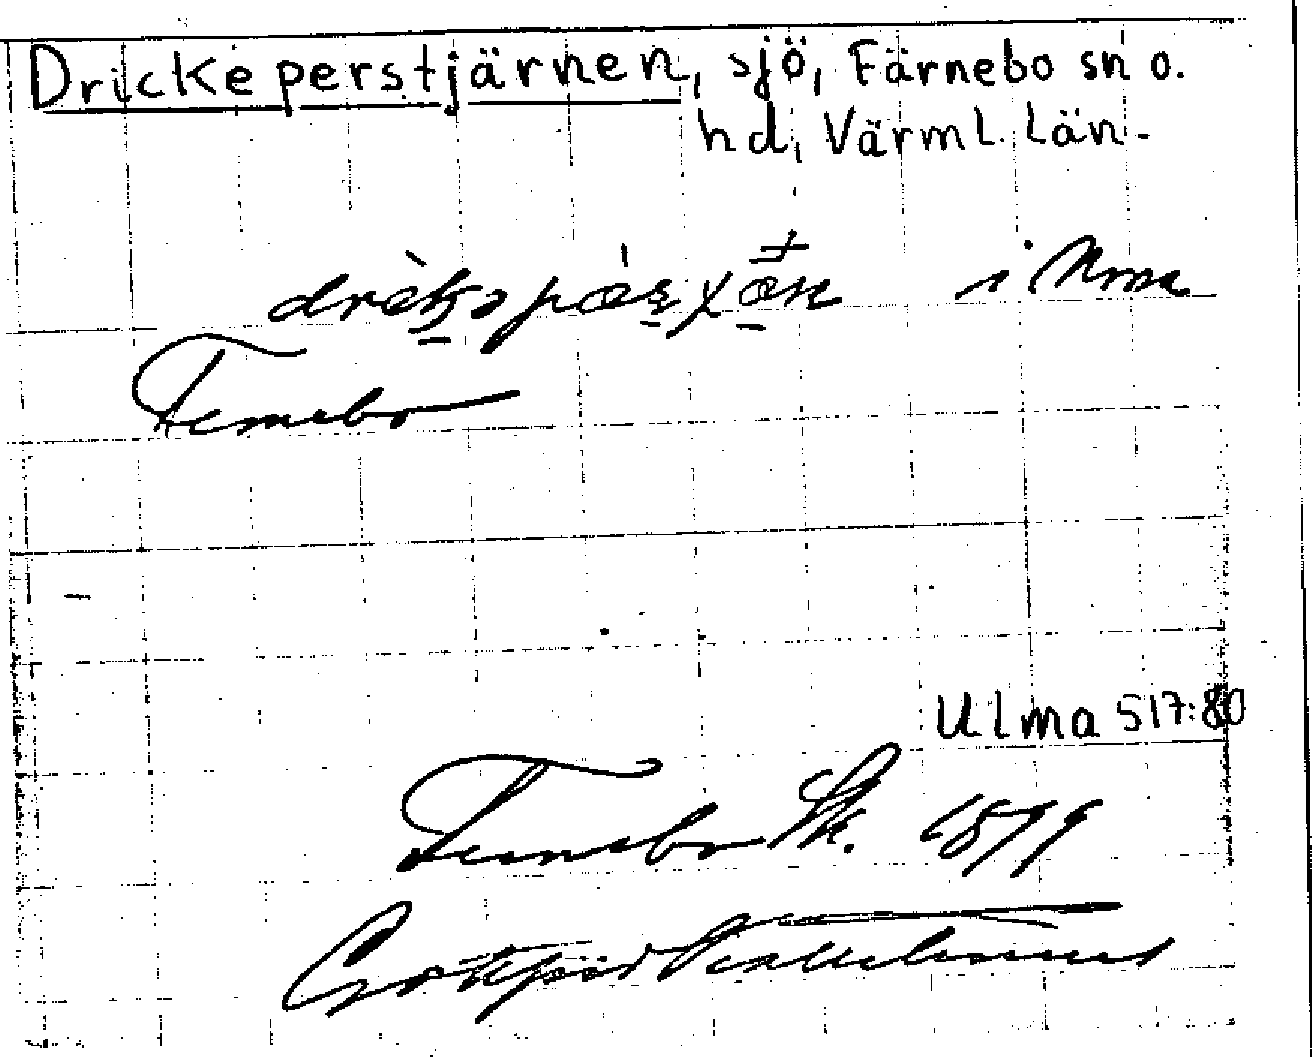 Drickeperstjärnen, sjö, Färnebo sn o.
hd, Värml. Län.
i
Fernebo
Ulma 517:80
Fernebo Sk. 1879
Gottfrid Kallstenius